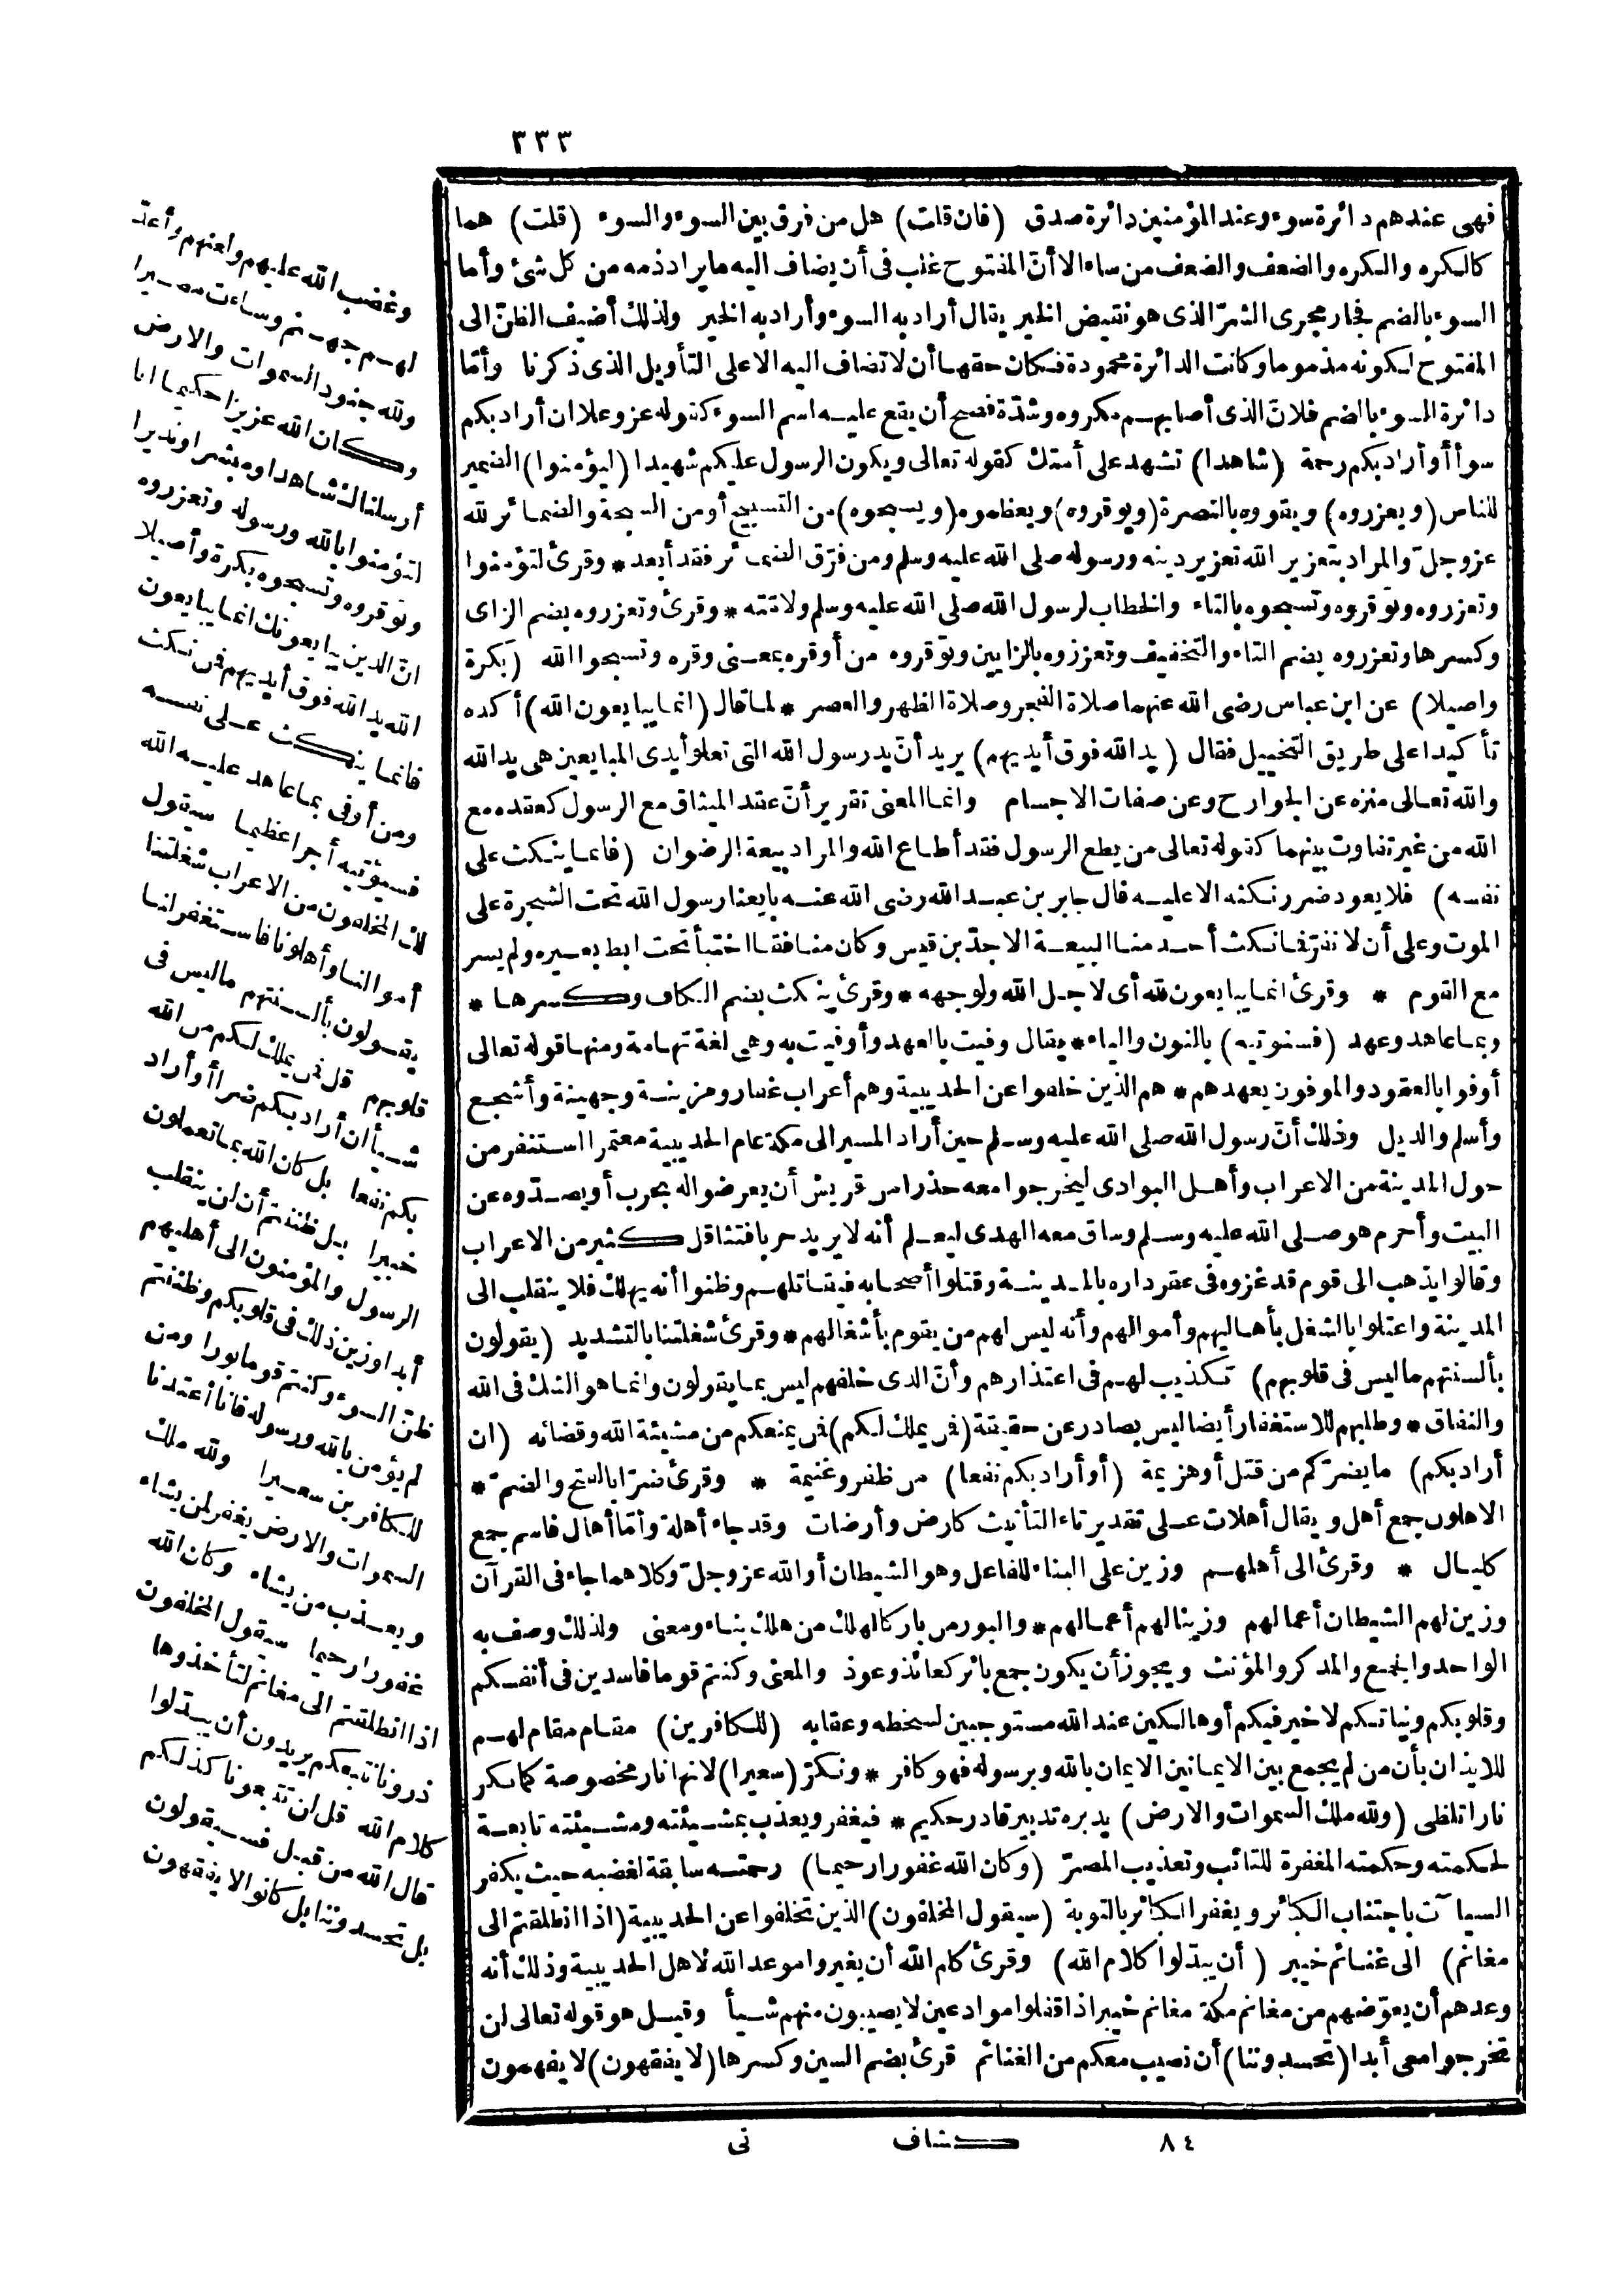 ٣٣٣
فهى عندهم دائرة سوء وعند المؤمنين دائرة صدق (فان قلت) هل من فرق بين السوء والسوء (قلت) هما
كالكره والكره والضعف والضعف من ساء الا أن المفتوح غلب فى أن يضاف اليه ما يراد ذمه من كل شئ وأما
السوء بالضم فجار مجرى الشرّ الذى هو نقيض الخير يقال أراد به السوء وأراد به الخير ولذلك أضيف الظنّ الى
المفتوح لكونه مذموما وكانت الدائرة محمودة فكان حقها أن لا تضاف اليه الا على التأويل الذى ذكرنا وأمّا
دائرة السوء بالضم فلانّ الذى أصابهم مكروه وشدّة فصح أن يقع عليه اسم السوء كقوله عز وعلا ان أراد بكم
سوأ أو أراد بكم رحمة (شاهدا) تشهد على أمتك كقوله تعالى ويكون الرسول عليكم شهيدا (ليؤمنوا) الضمير
للناس (ويعزروه) ويقووه بالنصرة (ويوقروه) ويعظموه (ويسبحوه) من التسبيح أو من السبحة والضمائر لله
عز وجلّ والمراد بتعزير الله تعزير دينه ورسوله صلى الله عليه وسلم ومن فرّق الضمائر فقد أبعد * وقرئ لتؤمنوا
وتعزروه وتوقروه وتسبحوه بالتاء والخطاب لرسول الله صلى الله عليه وسلم ولامّته * وقرئ وتعزروه بضم الزاى
وكسرها وتعزروه بضم التاء والتخفيف وتعززوه بالزايين وتوقروه من أوقره بمعنى وقره وتسبحوا الله (بكرة
واصيلا) عن ابن عباس رضى الله عنهما صلاة الفجر وصلاة الظهر والعصر * لما قال (انما يبايعون الله) أكده
تأكيدا على طريق التخييل فقال (يد الله فوق أيديهم) يريد أنّ يد رسول الله التى تعلو أيدى المبايعين هى يد الله
والله تعالى منزه عن الجوارح وعن صفات الاجسام وانما المعنى تقرير أنّ عقد الميثاق مع الرسول كعقده مع
الله من غير تفاوت بينهما كقوله تعالى من يطع الرسول فقد أطاع الله والمراد بيعة الرضوان (فانما ينكث على
نفسه) فلا يعود ضرر نكثه الا عليه قال جابر بن عبد الله رضى الله عنه بايعنا رسول الله تحت الشجرة على
الموت وعلى أن لا نفرّ فما نكث أحد منا البيعة الا جدّ بن قيس وكان منافقا اختبأ تحت ابط بعيره ولم يسر
مع القوم * وقرئ انما يبايعون لله أى لاجل الله ولوجهه * وقرئ ينكث بضم الكاف وكسرها *
وبما عاهد وعهد (فسنؤتيه) بالنون والياء * يقال وفيت بالعهد وأوفيت به وهى لغة تهامة ومنها قوله تعالى
أوفوا بالعقود والموفون بعهدهم * هم الذين خلفوا عن الحديبية وهم أعراب غفار ومزينة وجهينة وأشجع
وأسلم والديل وذلك أنّ رسول الله صلى الله عليه وسلم حين أراد المسير الى مكة عام الحديبية معتمرا استنفر من
حول المدينة من الاعراب وأهل البوادى ليخرجوا معه حذرا من قريش أن يعرضوا له بحرب أو يصدّوه عن
البيت وأحرم هو صلى الله عليه وسلم وساق معه الهدى ليعلم أنه لا يريد حربا فتثاقل كثير من الاعراب
وقالوا يذهب الى قوم قد غزوه فى عقر داره بالمدينة وقتلوا أصحابه فيقاتلهم وظنوا أنه يهلك فلا ينقلب الى
المدينة واعتلوا بالشغل بأهاليهم وأموالهم وأنه ليس لهم من يقوم بأشغالهم * وقرئ شغلتنا بالتشديد (يقولون
بألسنتهم ما ليس فى قلوبهم) تكذيب لهم فى اعتذارهم وأنّ الذى خلفهم ليس بما يقولون وانما هو الشك فى الله
والنفاق * وطلبهم للاستغفار أيضا ليس بصادر عن حقيقة (فمن يملك لكم) فمن يمنعكم من مشيئة الله وقضائه (ان
أراد بكم) ما يضرّكم من قتل أو هزيمة (أو أراد بكم نفعا) من ظفر وغنيمة * وقرئ ضرّا بالفتح والضمّ *
الاهلون جمع أهل ويقال أهلات على تقدير تاء التأنيث كارض وأرضات وقد جاء أهلة وأمّا أهال فاسم جمع
كليال * وقرئ الى أهلهم وزين على البناء للفاعل وهو الشيطان أو الله عز وجلّ وكلاهما جاء فى القرآن
وزين لهم الشيطان أعمالهم وزينا لهم أعمالهم * والبور من بار كالهلك من هلك بناء ومعنى ولذلك وصف به
الواحد والجمع والمذكر والمؤنث ويجوز أن يكون جمع بائر كعائذ وعوذ والمعنى وكنتم قوما فاسدين فى أنفسكم
وقلوبكم ونياتكم لا خير فيكم أو هالكين عند الله مستوجبين لسخطه وعقابه (للكافرين) مقام مقام لهم
للايذان بأن من لم يجمع بين الايمانين الايمان بالله وبرسوله فهو كافر * ونكرّ (سعيرا) لانها نار مخصوصة كما نكر
نارا تلظى (ولله ملك السموات والارض) يدبره تدبير قادر حكيم * فيغفر ويعذب بمشيئته ومشيئته تابعة
لحكمته وحكمته المغفرة للتائب وتعذيب المصرّ (وكان الله غفورا رحيما) رحمته سابقة لغضبه حيث يكفر
السيآت باجتناب الكبائر ويغفر الكبائر بالتوبة (سيقول المخلفون) الذين تخلفوا عن الحديبية (اذا انطلقتم الى
مغانم) الى غنائم خيبر (أن يبدّلوا كلام الله) وقرئ كلم الله أن يغيروا موعد الله لاهل الحديبية وذلك أنه
وعدهم أن يعوّضهم من مغانم مكة مغانم خيبر اذا قفلوا موادعين لا يصيبون منهم شيأ وقيل هو قوله تعالى لن
تخرجوا معى أبدا (تحسدوننا) أن نصيب معكم من الغنائم قرئ بضم السين وكسرها (لا يفقهون) لا يفهمون
وغضب الله عليهم ولعنهم وأعدّ
لهم جهنم وساءت مصيرا
ولله جنود السموات والارض
وكان الله عزيزا حكيما انا
أرسلناك شاهدا ومبشرا ونذيرا
لتؤمنوا بالله ورسوله وتعزروه
وتوقروه وتسبحوه بكرة وأصيلا
انّ الذين يبايعونك انما يبايعون
الله يد الله فوق أيديهم فمن نكث
فانما ينكث على نفسه
ومن أوفى بما عاهد عليه الله
فسيؤتيه أجرا عظيما سيقول
لك المخلفون من الاعراب شغلتنا
أموالنا وأهلونا فاستغفر لنا
يقولون بألسنتهم ما ليس فى
قلوبهم قل فمن يملك لكم من الله
شيأ ان أراد بكم ضرا أو أراد
بكم نفعا بل كان الله بما تعملون
خبيرا بل ظننتم أن لن ينقلب
الرسول والمؤمنون الى أهليهم
أبدا وزين ذلك فى قلوبكم وظننتم
ظنّ السوء وكنتم قوما بورا ومن
لم يؤمن بالله ورسوله فانا أعتدنا
للكافرين سعيرا ولله ملك
السموات والارض يغفر لمن يشاء
ويعذب من يشاء وكان الله
غفورا رحيما سيقول المخلفون
اذا انطلقتم الى مغانم لتأخذوها
ذرونا نتبعكم يريدون أن يبدّلوا
كلام الله قل لن تتبعونا كذلكم
قال الله من قبل فسيقولون
بل تحسدوننا بل كانوا لا يفقهون
٨٤ كشاف نى